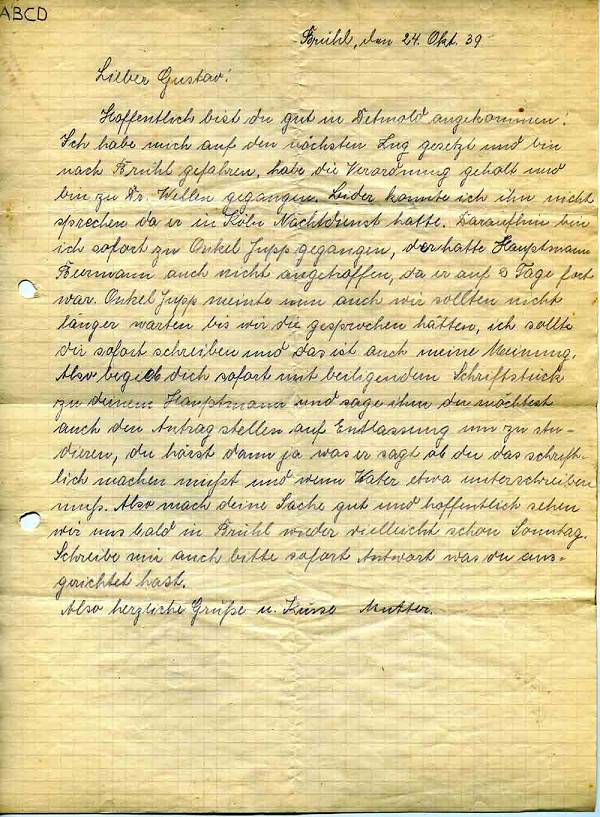 ABCD
Brühl, den 24. Okt. 39
Lieber Gustav!
Hoffentlich bist du gut in Detmold angekommen!
Ich habe mich auf den nächsten Zug gesetzt und bin
nach Brühl gefahren, habe die Verordnung geholt und
bin zu Dr. Wellen gegangen. Leider konnte ich ihn nicht
sprechen da er in Köln Nachtdienst hatte. Daraufhin bin
ich sofort zu Onkel Jupp gegangen, der hatte Hauptmann
auch nicht angetroffen, da er auf 3 Tage fort
war. Onkel Jupp meinte nun auch wir sollten nicht
länger warten bis wir die gesprochen hätten, ich sollte
dir sofort schreiben und das ist auch meine Meinung.
Also begeb dich sofort mit beiligendem Schriftstück
zu deinem Hauptmann und sage ihm du möchtest
auch den Antrag stellen auf Entlassung um zu stu-
dieren, du hörst dann ja was er sagt ob du das schrift-
lich machen mußt und wenn Vater etwa unterschreiben
muß. Also mach deine Sache gut und hoffentlich sehen
wir uns bald in Brühl wieder vielleicht schon Sonntag.
Schreibe mir auch bitte sofort Antwort was du aus-
gerichtet hast.
Also herzliche Grüße u. Küsse Mutter.